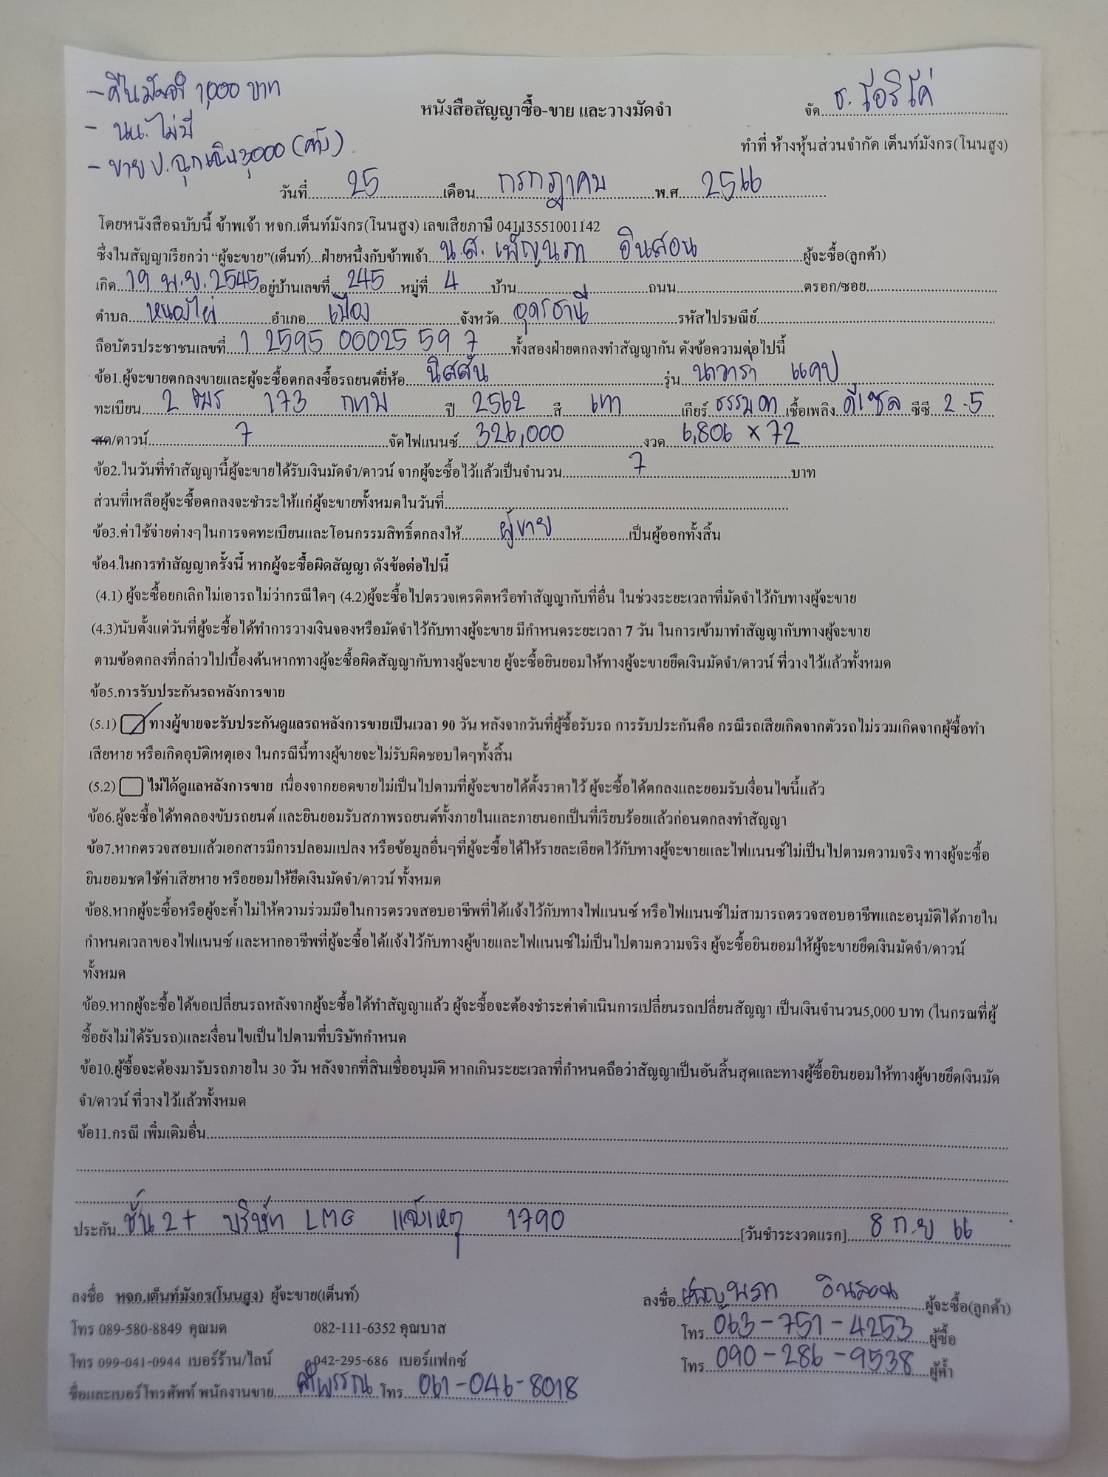 - คืนมัดจำ 1,000 บาท
- นน. ไม่มี
- ขาย ป.ฉุกเฉิน 3,000 (ครั้ง)
หนังสือสัญญาซื้อ-ขาย และวางมัดจำ
จัด ธ. โอริโค่
ทำที่ ห้างหุ้นส่วนจำกัด เต็นท์มังกร(โนนสูง)
วันที่ 25 เดือน กรกฎาคม พ.ศ. 2566
โดยหนังสือฉบับนี้ ข้าพเจ้า หจก.เต็นท์มังกร(โนนสูง) เลขเสียภาษี 04113551001142
ซึ่งในสัญญาเรียกว่า "ผู้จะขาย"(เต็นท์)...ฝ่ายหนึ่งกับข้าพเจ้า น.ส. เพ็ญนภา อินสอน ผู้จะซื้อ(ลูกค้า)
เกิด 19 พ.ย. 2545 อยู่บ้านเลขที่ 245 หมู่ที่ 4 บ้าน ถนน ตรอก/ซอย
ตำบล หนองไผ่ อำเภอ เมือง จังหวัด อุดรธานี รหัสไปรษณีย์
ถือบัตรประชาชนเลขที่ 1 2595 00025 59 7 ทั้งสองฝ่ายตกลงทำสัญญากัน ดังข้อความต่อไปนี้
ข้อ1.ผู้จะขายตกลงขายและผู้จะซื้อตกลงซื้อรถยนต์ยี่ห้อ นิสสัน รุ่น นาวาร่า แคป
ทะเบียน 2 ฒร 173 กทม ปี 2562 สี เทา เกียร์ ธรรมดา เชื้อเพลิง ดีเซล ซีซี 2.5
สด/ดาวน์ 7 จัดไฟแนนซ์ 326,000 งวด 6,806 × 72
ข้อ2.ในวันที่ทำสัญญานี้ผู้จะขายได้รับเงินมัดจำ/ดาวน์ จากผู้จะซื้อไว้แล้วเป็นจำนวน 7 บาท
ส่วนที่เหลือผู้จะซื้อตกลงจะชำระให้แก่ผู้จะขายทั้งหมดในวันที่
ข้อ3.ค่าใช้จ่ายต่างๆในการจดทะเบียนและโอนกรรมสิทธิ์ตกลงให้ ผู้ขาย เป็นผู้ออกทั้งสิ้น
ข้อ4.ในการทำสัญญาครั้งนี้ หากผู้จะซื้อผิดสัญญา ดังข้อต่อไปนี้
(4.1) ผู้จะซื้อยกเลิกไม่เอารถไม่ว่ากรณีใดๆ (4.2)ผู้จะซื้อไปตรวจเครดิตหรือทำสัญญากับที่อื่น ในช่วงระยะเวลาที่มัดจำไว้กับทางผู้จะขาย
(4.3)นับตั้งแต่วันที่ผู้จะซื้อได้ทำการวางเงินจองหรือมัดจำไว้กับทางผู้จะขาย มีกำหนดระยะเวลา 7 วัน ในการเข้ามาทำสัญญากับทางผู้จะขาย
ตามข้อตกลงที่กล่าวไปเบื้องต้นหากทางผู้จะซื้อผิดสัญญากับทางผู้จะขาย ผู้จะซื้อยินยอมให้ทางผู้จะขายยึดเงินมัดจำ/ดาวน์ ที่วางไว้แล้วทั้งหมด
ข้อ5.การรับประกันรถหลังการขาย
(5.1) ทางผู้ขายจะรับประกันดูแลรถหลังการขายเป็นเวลา 90 วัน หลังจากวันที่ผู้ซื้อรับรถ การรับประกันคือ กรณีรถเสียเกิดจากตัวรถไม่รวมเกิดจากผู้ซื้อทำ
เสียหาย หรือเกิดอุบัติเหตุเอง ในกรณีนี้ทางผู้ขายจะไม่รับผิดชอบใดๆทั้งสิ้น
(5.2) ไม่ได้ดูแลหลังการขาย เนื่องจากยอดขายไม่เป็นไปตามที่ผู้จะขายได้ตั้งราคาไว้ ผู้จะซื้อได้ตกลงและยอมรับเงื่อนไขนี้แล้ว
ข้อ6.ผู้จะซื้อได้ทดลองขับรถยนต์ และยินยอมรับสภาพรถยนต์ทั้งภายในและภายนอกเป็นที่เรียบร้อยแล้วก่อนตกลงทำสัญญา
ข้อ7.หากตรวจสอบแล้วเอกสารมีการปลอมแปลง หรือข้อมูลอื่นๆที่ผู้จะซื้อได้ให้รายละเอียดไว้กับทางผู้จะขายและไฟแนนซ์ไม่เป็นไปตามความจริง ทางผู้จะซื้อ
ยินยอมชดใช้ค่าเสียหาย หรือยอมให้ยึดเงินมัดจำ/ดาวน์ ทั้งหมด
ข้อ8.หากผู้จะซื้อหรือผู้จะค้ำไม่ให้ความร่วมมือในการตรวจสอบอาชีพที่ได้แจ้งไว้กับทางไฟแนนซ์ หรือไฟแนนซ์ไม่สามารถตรวจสอบอาชีพและอนุมัติได้ภายใน
กำหนดเวลาของไฟแนนซ์ และหากอาชีพที่ผู้จะซื้อได้แจ้งไว้กับทางผู้ขายและไฟแนนซ์ไม่เป็นไปตามความจริง ผู้จะซื้อยินยอมให้ผู้จะขายยึดเงินมัดจำ/ดาวน์
ทั้งหมด
ข้อ9.หากผู้จะซื้อได้ขอเปลี่ยนรถหลังจากผู้จะซื้อได้ทำสัญญาแล้ว ผู้จะซื้อจะต้องชำระค่าดำเนินการเปลี่ยนรถเปลี่ยนสัญญา เป็นเงินจำนวน5,000 บาท (ในกรณที่ผู้
ซื้อยังไม่ได้รับรถ)และเงื่อนไขเป็นไปตามที่บริษัทกำหนด
ข้อ10.ผู้ซื้อจะต้องมารับรถภายใน 30 วัน หลังจากที่สินเชื่ออนุมัติ หากเกินระยะเวลาที่กำหนดถือว่าสัญญาเป็นอันสิ้นสุดและทางผู้ซื้อยินยอมให้ทางผู้ขายยึดเงินมัด
จำ/ดาวน์ ที่วางไว้แล้วทั้งหมด
ข้อ11.กรณี เพิ่มเติมอื่น
ประกัน ชั้น 2+ บริษัท LMG แจ้งเหตุ 1790 [วันชำระงวดแรก] 8 ก.ย 66
ลงชื่อ หจก.เต็นท์มังกร(โนนสูง) ผู้จะขาย(เต็นท์)
ลงชื่อ เพ็ญนภา อินสอน ผู้จะซื้อ(ลูกค้า)
โทร 089-580-8849 คุณมด 082-111-6352 คุณบาส
โทร 063-751-4253 ผู้ซื้อ
โทร 099-041-0944 เบอร์ร้าน/ไลน์ 042-295-686 เบอร์แฟกซ์
โทร 090-286-9538 ผู้ค้ำ
ชื่อและเบอร์โทรศัพท์ พนักงานขาย ศิพรรณ โทร 061-046-8018